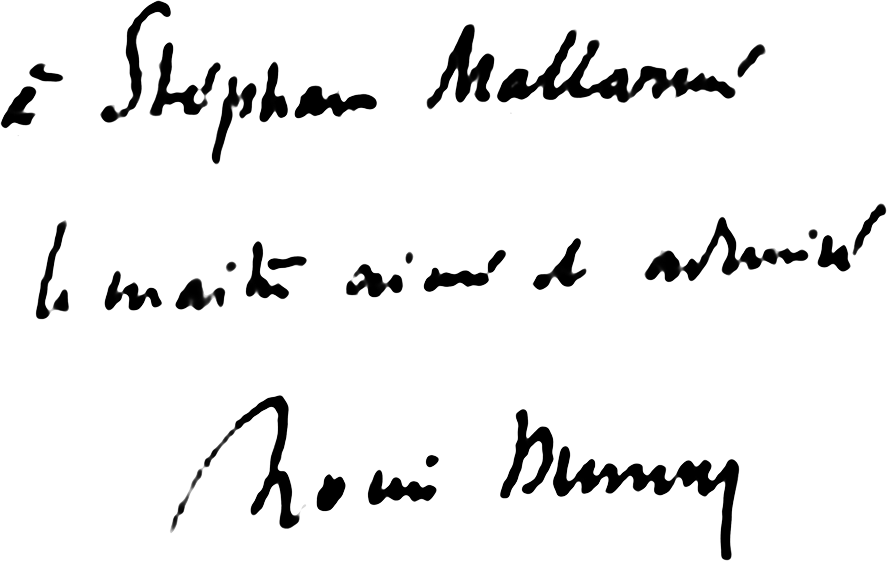 à Stéphane Mallarmé
le maître aimé et admiré
Louis Dumur